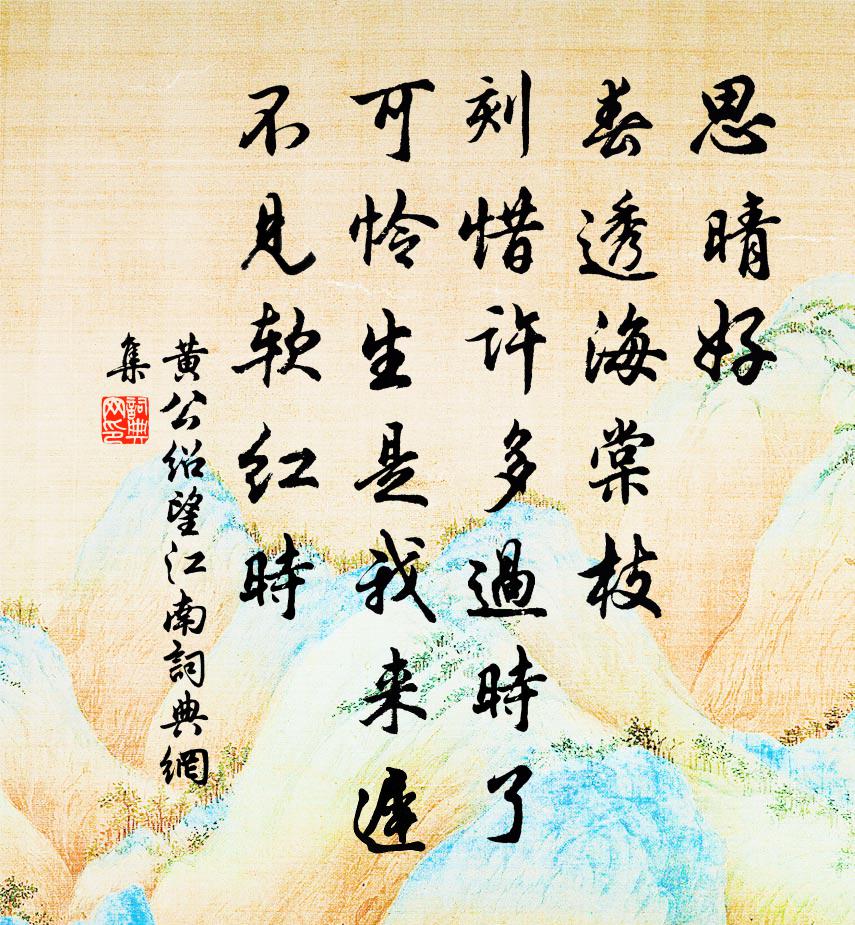 思晴好
春透海棠枝
刻惜許多過時了
可怜生是我来遲
不見软红時
黄公绍望江南詞典網
集
詞典
网印